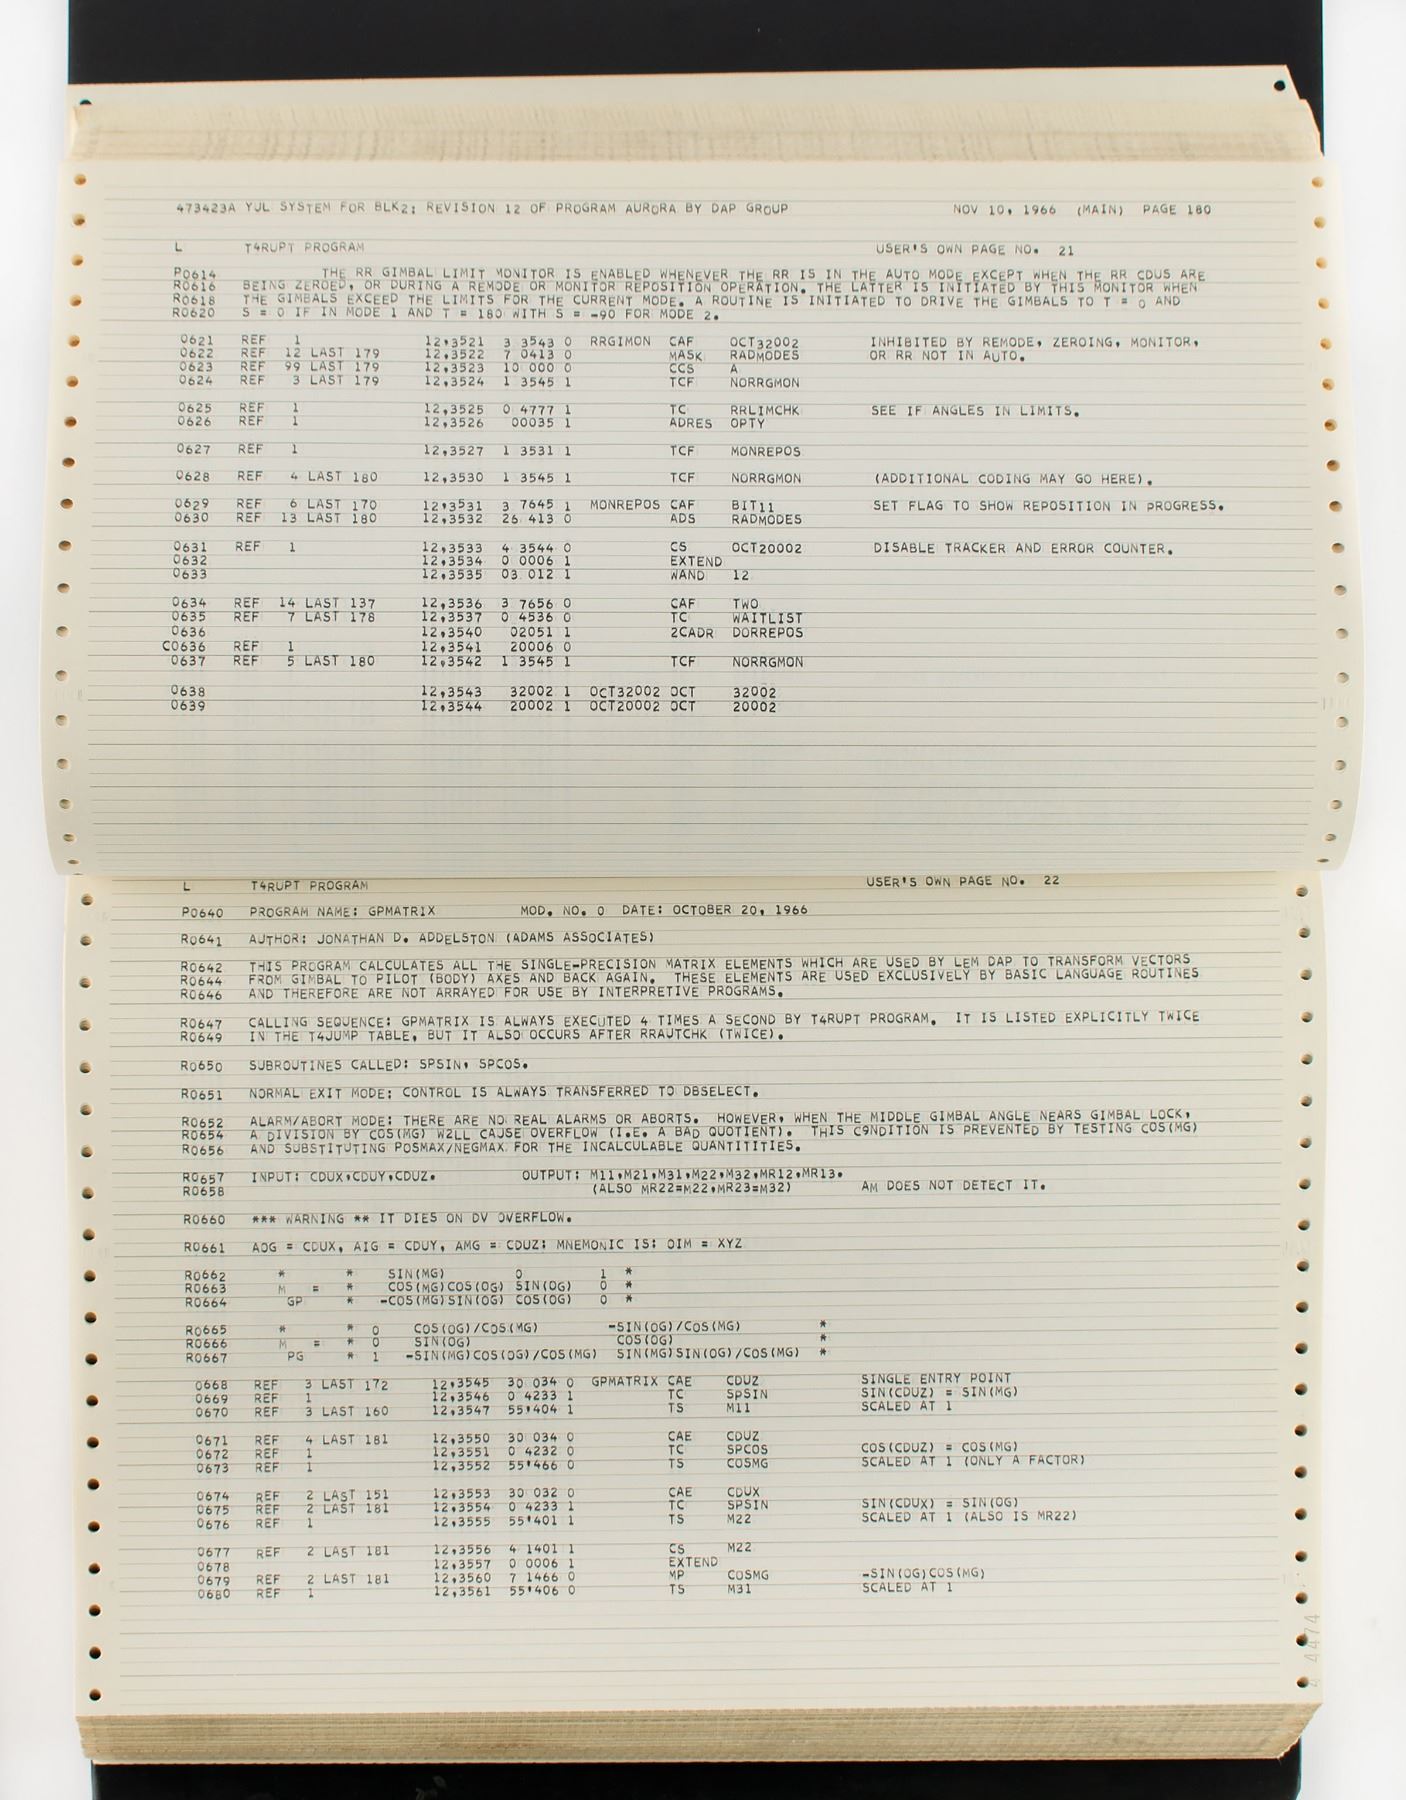 473423A YUL SYSTEM FOR BLK2: REVISION 12 OF PROGRAM AURORA BY DAP GROUP NOV 10, 1966 (MAIN) PAGE 180
L T4RUPT PROGRAM USER'S OWN PAGE NO. 21
P0614 THE RR GIMBAL LIMIT MONITOR IS ENABLED WHENEVER THE RR IS IN THE AUTO MODE EXCEPT WHEN THE RR CDUS ARE
R0616 BEING ZEROED, OR DURING A REMODE OR MONITOR REPOSITION OPERATION. THE LATTER IS INITIATED BY THIS MONITOR WHEN
R0618 THE GIMBALS EXCEED THE LIMITS FOR THE CURRENT MODE. A ROUTINE IS INITIATED TO DRIVE THE GIMBALS TO T = 0 AND
R0620 S = 0 IF IN MODE 1 AND T = 180 WITH S = -90 FOR MODE 2.
0621 REF 1 12,3521 3 3543 0 RRGIMON CAF OCT32002 INHIBITED BY REMODE, ZEROING, MONITOR,
0622 REF 12 LAST 179 12,3522 7 0413 0 MASK RADMODES OR RR NOT IN AUTO.
0623 REF 99 LAST 179 12,3523 10 000 0 CCS A
0624 REF 3 LAST 179 12,3524 1 3545 1 TCF NORRGMON
0625 REF 1 12,3525 0 4777 1 TC RRLIMCHK SEE IF ANGLES IN LIMITS.
0626 REF 1 12,3526 00035 1 ADRES OPTY
0627 REF 1 12,3527 1 3531 1 TCF MONREPOS
0628 REF 4 LAST 180 12,3530 1 3545 1 TCF NORRGMON (ADDITIONAL CODING MAY GO HERE).
0629 REF 6 LAST 170 12,3531 3 7645 1 MONREPOS CAF BIT11 SET FLAG TO SHOW REPOSITION IN PROGRESS.
0630 REF 13 LAST 180 12,3532 26 413 0 ADS RADMODES
0631 REF 1 12,3533 4 3544 0 CS OCT20002 DISABLE TRACKER AND ERROR COUNTER.
0632 12,3534 0 0006 1 EXTEND
0633 12,3535 03 012 1 WAND 12
0634 REF 14 LAST 137 12,3536 3 7656 0 CAF TWO
0635 REF 7 LAST 178 12,3537 0 4536 0 TC WAITLIST
0636 12,3540 02051 1 2CADR DORREPOS
C0636 REF 1 12,3541 20006 0
0637 REF 5 LAST 180 12,3542 1 3545 1 TCF NORRGMON
0638 12,3543 32002 1 OCT32002 OCT 32002
0639 12,3544 20002 1 OCT20002 OCT 20002
L T4RUPT PROGRAM USER'S OWN PAGE NO. 22
P0640 PROGRAM NAME: GPMATRIX MOD. NO. 0 DATE: OCTOBER 20, 1966
R0641 AUTHOR: JONATHAN D. ADDELSTON (ADAMS ASSOCIATES)
R0642 THIS PROGRAM CALCULATES ALL THE SINGLE-PRECISION MATRIX ELEMENTS WHICH ARE USED BY LEM DAP TO TRANSFORM VECTORS
R0644 FROM GIMBAL TO PILOT (BODY) AXES AND BACK AGAIN. THESE ELEMENTS ARE USED EXCLUSIVELY BY BASIC LANGUAGE ROUTINES
R0646 AND THEREFORE ARE NOT ARRAYED FOR USE BY INTERPRETIVE PROGRAMS.
R0647 CALLING SEQUENCE: GPMATRIX IS ALWAYS EXECUTED 4 TIMES A SECOND BY T4RUPT PROGRAM. IT IS LISTED EXPLICITLY TWICE
R0649 IN THE T4JUMP TABLE, BUT IT ALSO OCCURS AFTER RRAUTCHK (TWICE).
R0650 SUBROUTINES CALLED: SPSIN, SPCOS.
R0651 NORMAL EXIT MODE: CONTROL IS ALWAYS TRANSFERRED TO DBSELECT.
R0652 ALARM/ABORT MODE: THERE ARE NO REAL ALARMS OR ABORTS. HOWEVER, WHEN THE MIDDLE GIMBAL ANGLE NEARS GIMBAL LOCK,
R0654 A DIVISION BY COS(MG) W2LL CAUSE OVERFLOW (I.E. A BAD QUOTIENT). THIS C9NDITION IS PREVENTED BY TESTING COS(MG)
R0656 AND SUBSTITUTING POSMAX/NEGMAX FOR THE INCALCULABLE QUANTITITIES.
R0657 INPUT: CDUX,CDUY,CDUZ. OUTPUT: M11,M21,M31,M22,M32,MR12,MR13.
R0658 (ALSO MR22=M22,MR23=M32) AM DOES NOT DETECT IT.
R0660 *** WARNING ** IT DIES ON DV OVERFLOW.
R0661 AOG = CDUX, AIG = CDUY, AMG = CDUZ: MNEMONIC IS: OIM = XYZ
R0662 * * SIN(MG) 0 1 *
R0663 M = * COS(MG)COS(OG) SIN(OG) 0 *
R0664 GP * -COS(MG)SIN(OG) COS(OG) 0 *
R0665 * * 0 COS(OG)/COS(MG) -SIN(OG)/COS(MG) *
R0666 M = * 0 SIN(OG) COS(OG) *
R0667 PG * 1 -SIN(MG)COS(OG)/COS(MG) SIN(MG)SIN(OG)/COS(MG) *
0668 REF 3 LAST 172 12,3545 30 034 0 GPMATRIX CAE CDUZ SINGLE ENTRY POINT
0669 REF 1 12,3546 0 4233 1 TC SPSIN SIN(CDUZ) = SIN(MG)
0670 REF 3 LAST 160 12,3547 55'404 1 TS M11 SCALED AT 1
0671 REF 4 LAST 181 12,3550 30 034 0 CAE CDUZ
0672 REF 1 12,3551 0 4232 0 TC SPCOS COS(CDUZ) = COS(MG)
0673 REF 1 12,3552 55'466 0 TS COSMG SCALED AT 1 (ONLY A FACTOR)
0674 REF 2 LAST 151 12,3553 30 032 0 CAE CDUX
0675 REF 2 LAST 181 12,3554 0 4233 1 TC SPSIN SIN(CDUX) = SIN(OG)
0676 REF 1 12,3555 55'401 1 TS M22 SCALED AT 1 (ALSO IS MR22)
0677 REF 2 LAST 181 12,3556 4 1401 1 CS M22
0678 12,3557 0 0006 1 EXTEND
0679 REF 2 LAST 181 12,3560 7 1466 0 MP COSMG -SIN(OG)COS(MG)
0680 REF 1 12,3561 55'406 0 TS M31 SCALED AT 1
4474